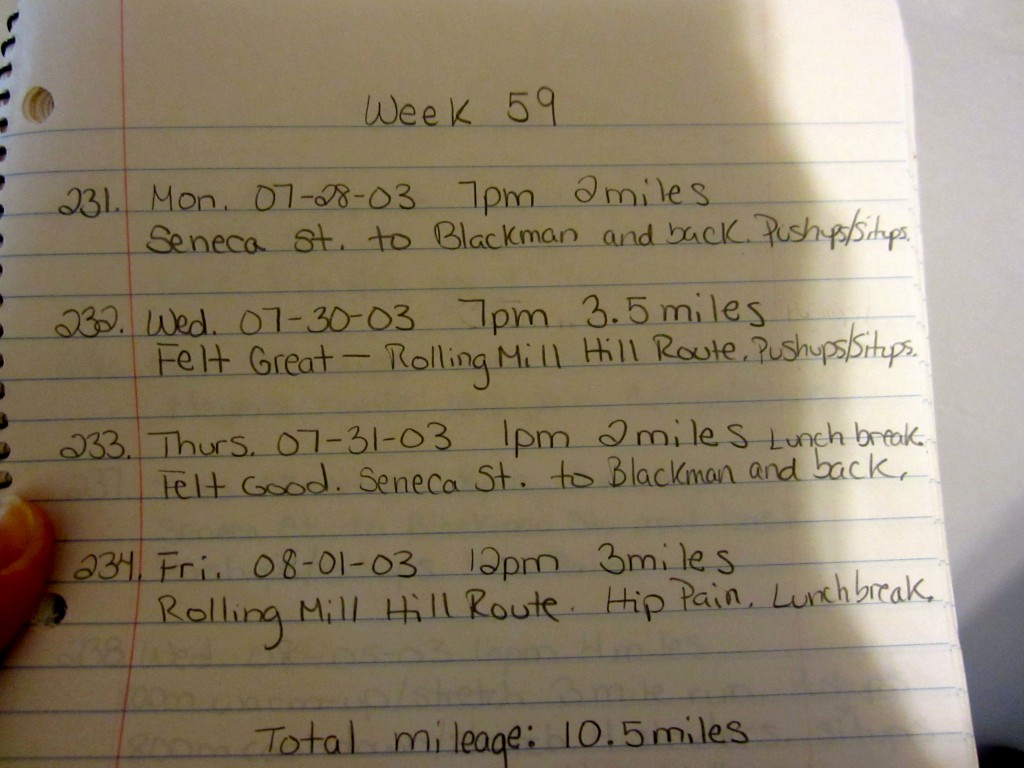 Week 59
231. Mon. 07-28-03 7pm 2miles
Seneca St. to Blackman and back. Pushups/Situps.
232. Wed. 07-30-03 7pm 3.5 miles
Felt Great - Rolling Mill Hill Route. Pushups/Situps.
233. Thurs. 07-31-03 1pm 2miles Lunch break.
Felt Good. Seneca St. to Blackman and back.
234. Fri. 08-01-03 12pm 3miles
Rolling Mill Hill Route. Hip Pain. Lunchbreak.
Total mileage: 10.5 miles